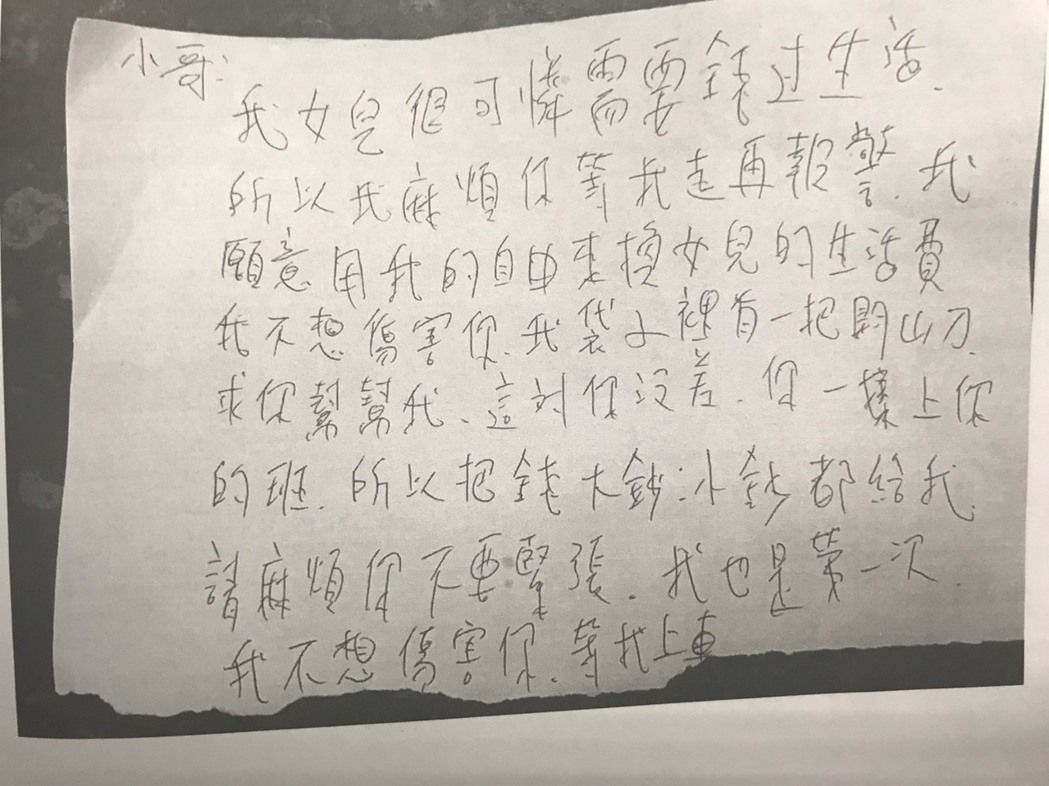 小哥:
我女兒很可憐需要錢过生活.
所以我麻煩你等我走再報警.我
願意用我的自由來換女兒的生活費
我不想傷害你.我袋子裡有一把開山刀.
求你幫幫我、這对你沒差.你一樣上你
的班.所以把錢大鈔小鈔都給我.
請麻煩你不要緊張.我也是第一次.
我不想傷害你.等我上車